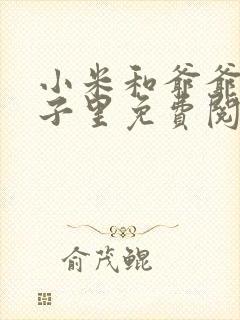 小米和爷爷
子里免费阅
俞茂鲲